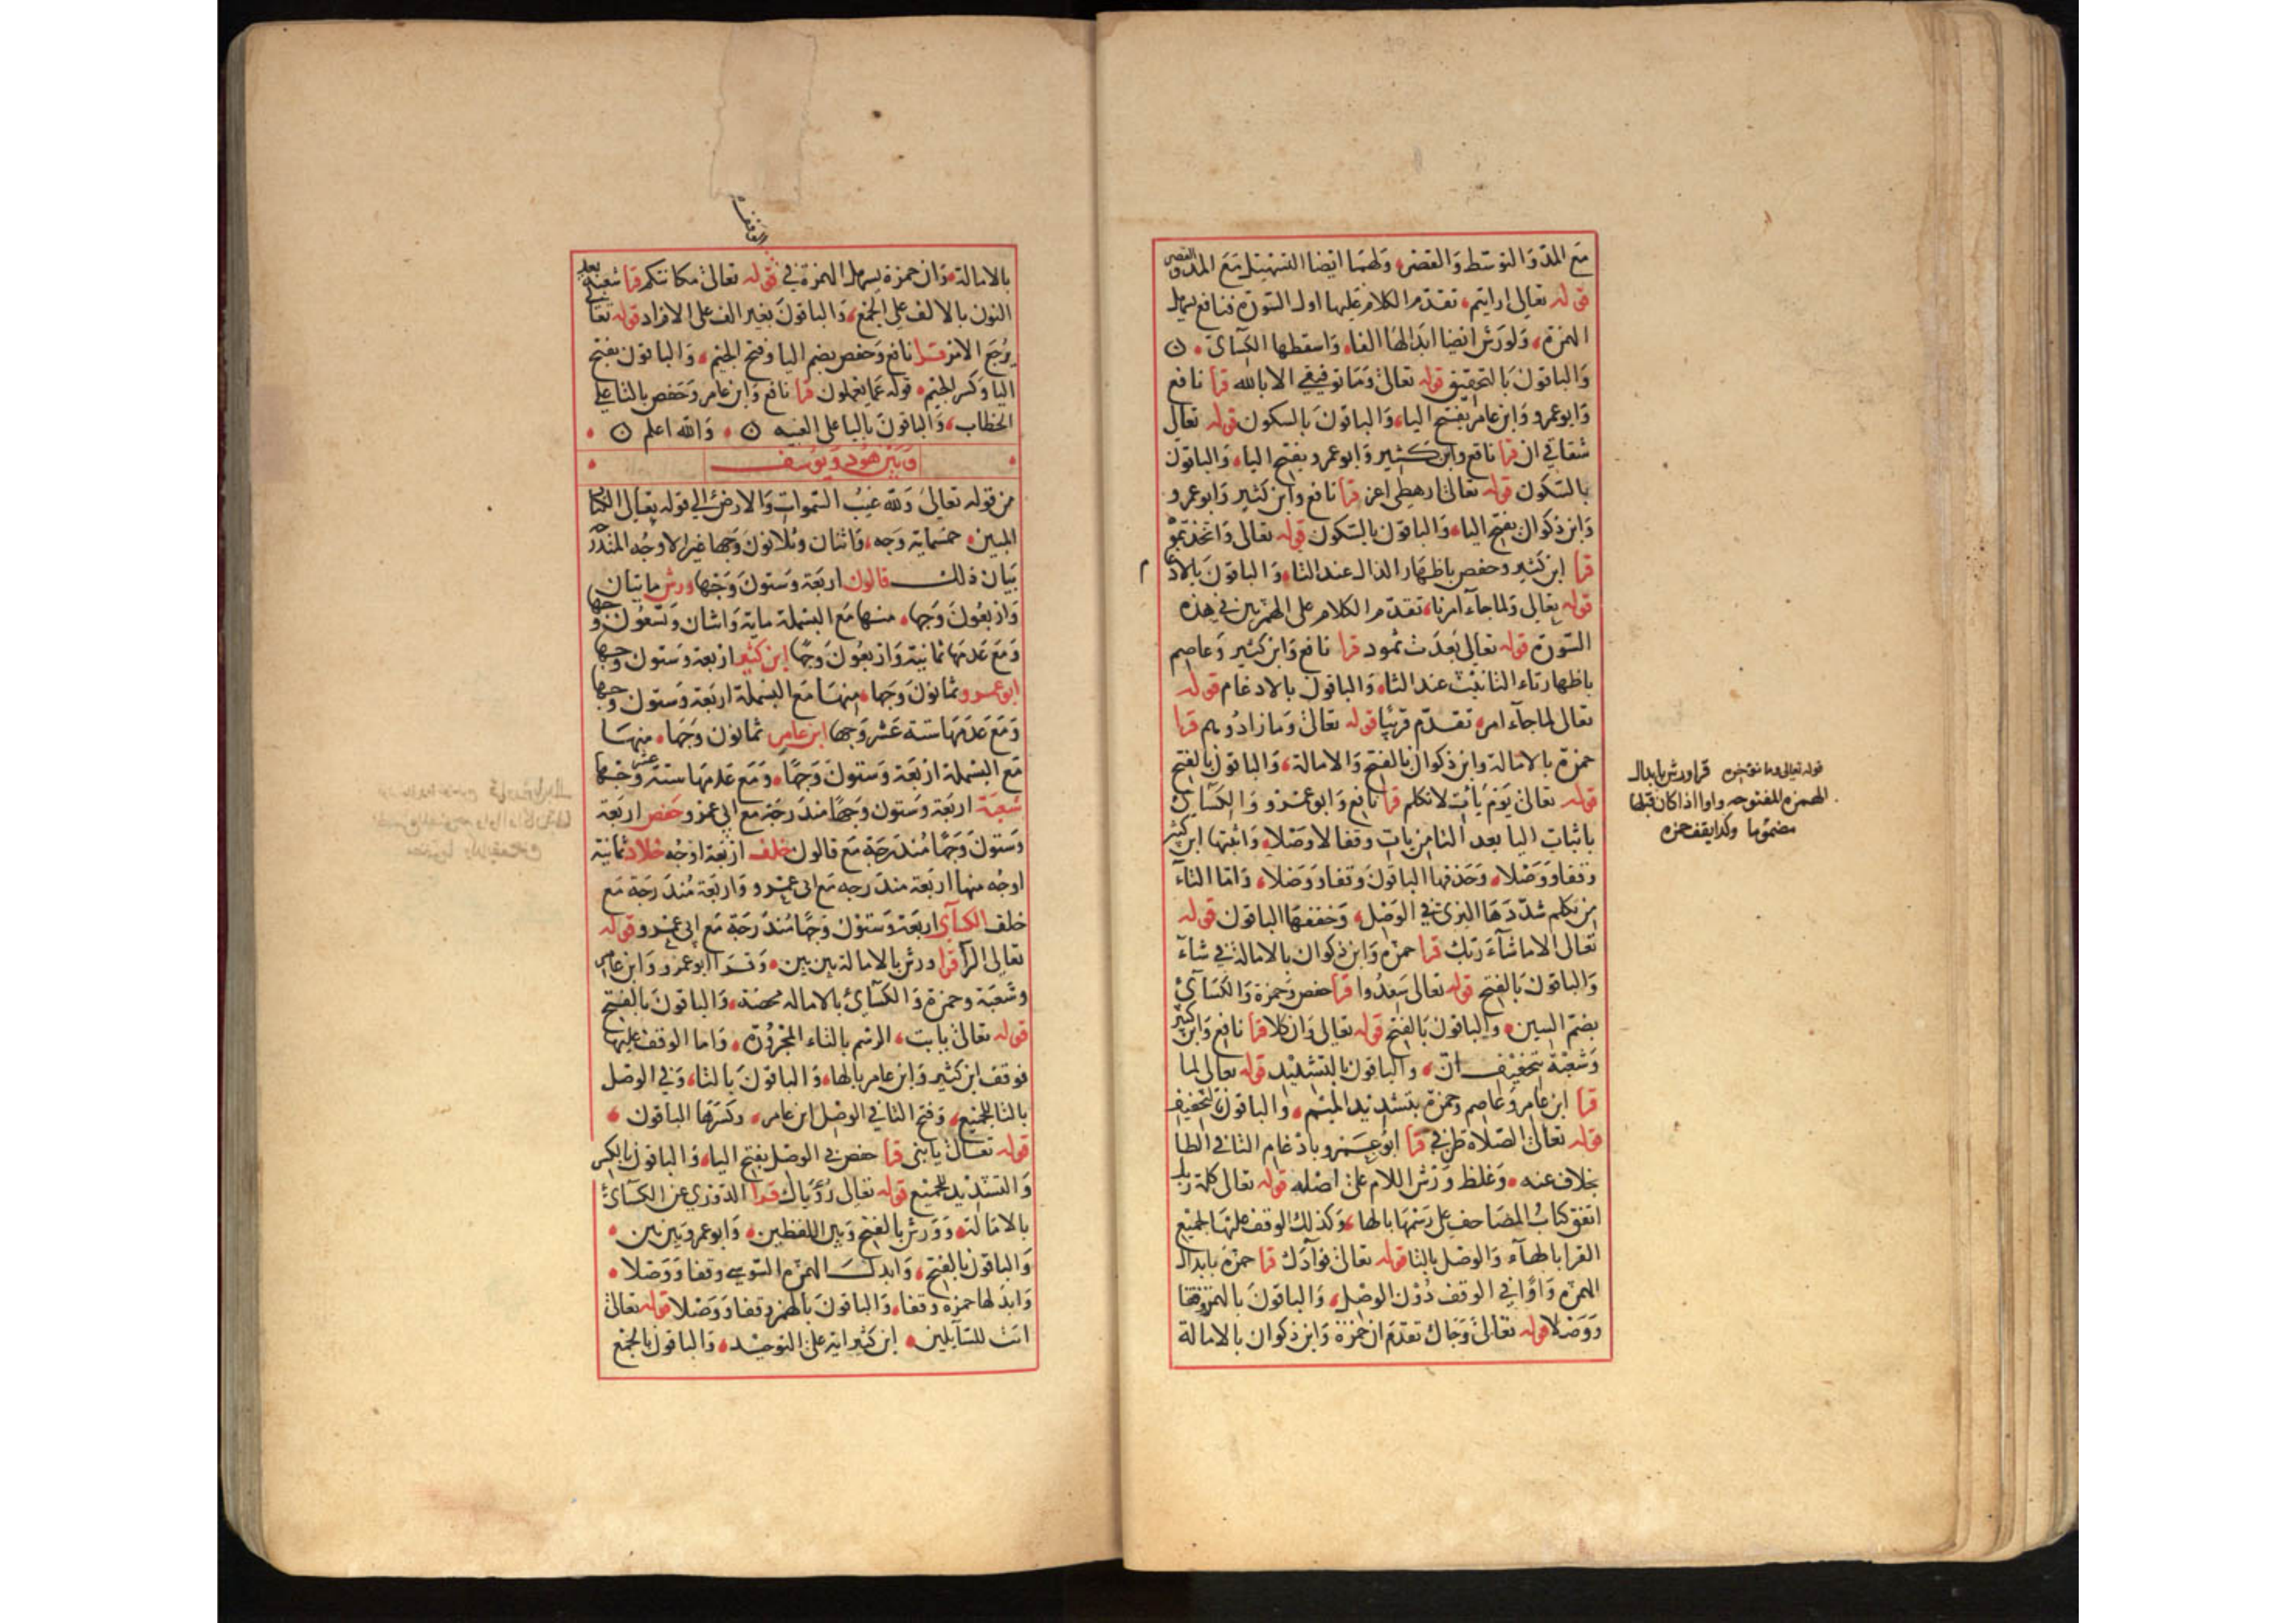 مع المد والتوسط والقصر ولهما ايضا التسهيل مع المد والقصر
قوله تعالى ارايتم تقدم الكلام عليها اول السورة فنافع يسهل
الهمزة ولورش ايضا ابدالها الفا واسقطها الكسائ ن
والباقون بالتحقيق قوله تعالى وما توفيقي الا بالله قرا نافع
وابو عمرو وابن عامر بفتح اليا والباقون بالسكون قوله تعالى
شقاقي ان قرا نافع وابن كثير وابو عمرو بفتح اليا والباقون
بالسكون قوله تعالى ارهطي اعز قرا نافع وابن كثير وابو عمرو
وابن ذكوان بفتح اليا والباقون بالسكون قوله تعالى واتخذتموه
قرا ابن كثير وحفص باظهار الذال عند التا والباقون بالادغام
قوله تعالى ولما جاء امرنا تقدم الكلام على الهمزتين في هذه
السورة قوله تعالى بعدت ثمود قرا نافع وابن كثير وعاصم
باظهار تاء التانيث عند الثا والباقون بالادغام قوله
تعالى لما جاء امر تقدم قريبا قوله تعالى وما زادوهم قرا
حمزة بالامالة وابن ذكوان بالفتح والامالة والباقون بالفتح
قوله تعالى يوم يات لا تكلم قرا نافع وابو عمرو والكسائ
باثبات اليا بعد التا من يات وقفا لا وصلا واثبتها ابن كثير
وقفا ووصلا وحذفها الباقون وقفا ووصلا واما التاء
من تكلم شددها البزى في الوصل وخففها الباقون قوله
تعالى الا ما شآء ربك قرا حمزه وابن ذكوان بالامالة في شآء
والباقون بالفتح قوله تعالى سعدوا قرا حفص وحمزة والكسائ
بضم السين والباقون بالفتح قوله تعالى وان كلا قرا نافع وابن كثير
وشعبة بتخفيف ان والباقون بالتشديد قوله تعالى لما
قرا ابن عامر وعاصم وحمزة بتشديد الميم والباقون بالتخفيف
قوله تعالى الصلاة طرفي قرا ابو عمرو بادغام التا في الطا
بخلاف عنه وغلظ ورش اللام على اصله قوله تعالى كلمة ربك
اتفق كتاب المصاحف على رسمها بالها وكذلك الوقف عليها لجميع
القرا بالهآء والوصل بالتا قوله تعالى فوآدك قرا حمزة بابدال
الهمزه واوا في الوقف دون الوصل والباقون بالهمز وقفا
ووصلا قوله تعالى وجاك تقدم ان حمزة وابن ذكوان بالامالة
قوله تعالى وما نوخره قرا ورش بابدال
الهمزه المفتوحه واوا اذا كان قبلها
مضموما وكذا يقف حمزه
بالامالة وان حمزة يسهل الهمزة في قوله تعالى مكانتكم قرا شعبة بعد
النون بالالف على الجمع والباقون بغير الف على الافراد قوله تعالى
يرجع الامر قرا نافع وحفص بضم اليا وفتح الجيم والباقون بفتح
اليا وكسر الجيم قوله عما يعملون قرا نافع وابن عامر وحفص بالتا على
الخطاب والباقون باليا على الغيبه ن والله اعلم ن
وبين هود ويوسف
من قوله تعالى ولله غيب السموات والارض الي قوله تعالى الكتاب
المبين خمسماية وجه واثنان وثلاثون وجها غير الاوجه المندرجة
بيان ذلك قالون اربعة وستون وجها ورش مايتان
واربعون وجها منها مع البسملة ماية واثنان وتسعون وجها
ومع عدمها ثمانية واربعون وجها ابن كثير اربعة وستون وجها
ابو عمرو ثمانون وجها منها مع البسملة اربعة وستون وجها
ومع عدمها ستة عشر وجها ابن عامر ثمانون وجها منها
مع البسملة اربعة وستون وجها ومع عدمها ستة عشر وجها
شعبة اربعة وستون وجها مندرجة مع ابي عمرو حفص اربعة
وستون وجها مندرجة مع قالون خلف اربعة اوجه خلاد ثمانية
اوجه منها اربعة مندرجه مع ابى عمرو واربعة مندرجة مع
خلف الكسائ اربعة وستون وجها مندرجة مع ابى عمرو قوله
تعالى الر قرا ورش بالامالة بين بين وقرا ابو عمرو وابن عامر
وشعبة وحمزة والكسائ بالاماله محضة والباقون بالفتح
قوله تعالى يا ابت الرسم بالتاء المجرورة واما الوقف عليها
فوقف ابن كثير وابن عامر بالها والباقون بالتا وفي الوصل
بالتا للجميع وفتح التا في الوصل ابن عامر وكسرها الباقون
قوله تعالى يا بنى قرا حفص في الوصل بفتح اليا والباقون بالكسر
والتشديد للجميع قوله تعالى رؤياك قرا الدوري عن الكسائ
بالامالة وورش بالفتح وبين اللفظين وابو عمرو بين بين
والباقون بالفتح وابدل الهمزه السوسي وقفا ووصلا
وابدلها حمزه وقفا والباقون بالهمز وقفا ووصلا قوله تعالى
ايت للسآيلين ابن كثير اية على التوحيد والباقون بالجمع